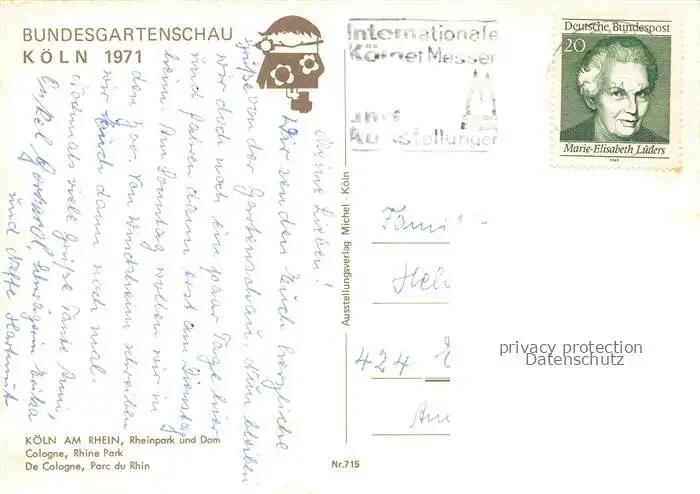 BUNDESGARTENSCHAU
KÖLN 1971
Meine Lieben!
Wir senden Euch herzliche
Grüße von der Gartenschau. Nun bleiben
wir doch noch ein paar Tage hier
und fahren dann erst am Dienstag
heim. Am Sonntag wollen wir in
den Zoo. Von Windsheim schreiben
wir Euch dann noch mal.
Nochmals viele Grüße Tante Anni,
Onkel Schwägerin
und Neffe Hartmut
KÖLN AM RHEIN, Rheinpark und Dom
Cologne, Rhine Park
De Cologne, Parc du Rhin
Nr. 715
Ausstellungsverlag Michel · Köln
Internationale
Kölner Messen
und
Ausstellungen
Deutsche Bundespost
20
Marie-Elisabeth Lüders
1969
Famil
Hel
424
Am
privacy protection
Datenschutz